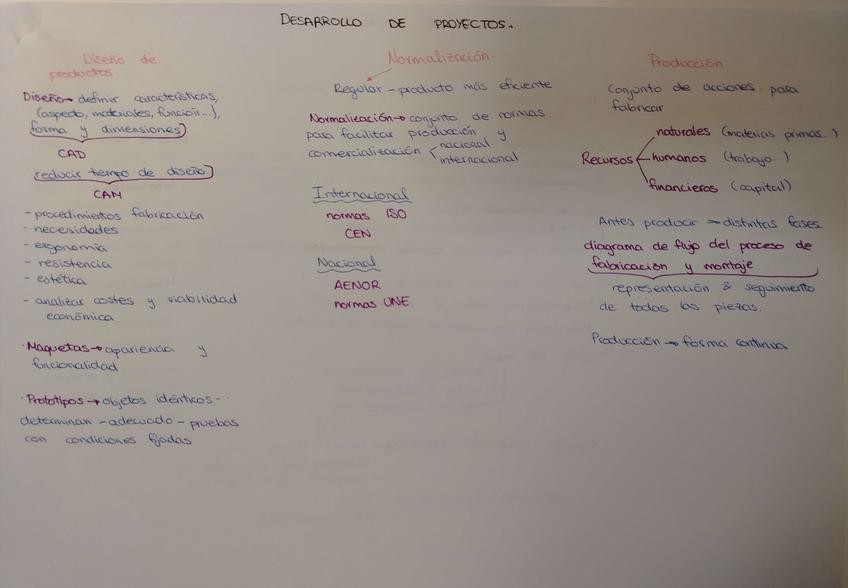 DESARROLLO DE PROYECTOS.
Diseño de
productos
Diseño → definir características,
(aspecto, materiales, función...),
forma y dimensiones)
CAD
reducir tiempo de diseño)
CAM
- procedimientos fabricación
- necesidades
- ergonomía
- resistencia
- estética
- analizar costes y viabilidad
económica
· Maquetas → apariencia y
funcionalidad
· Prototipos → objetos idénticos -
determinan - adecuado - pruebas
con condiciones fijadas
Normalización
Regular - producto más eficiente
Normalización → conjunto de normas
para facilitar producción y
comercialización
nacional
internacional
Internacional
normas ISO
CEN
Nacional
AENOR
normas UNE
Producción
Conjunto de acciones para
fabricar
naturales (materias primas..)
Recursos humanos (trabajo..)
financieros (capital)
Antes producir → distintas fases.
diagrama de flujo del proceso de
fabricación y montaje
representación & seguimiento
de todas las piezas.
Producción → forma continua